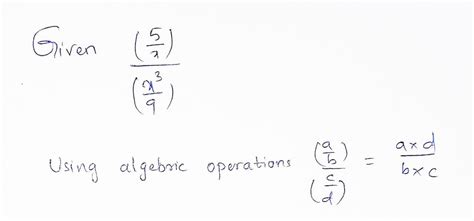 Given (5/x)/(x³/9)
Using algebric operations (a/b)/(c/d) = a×d/b×c